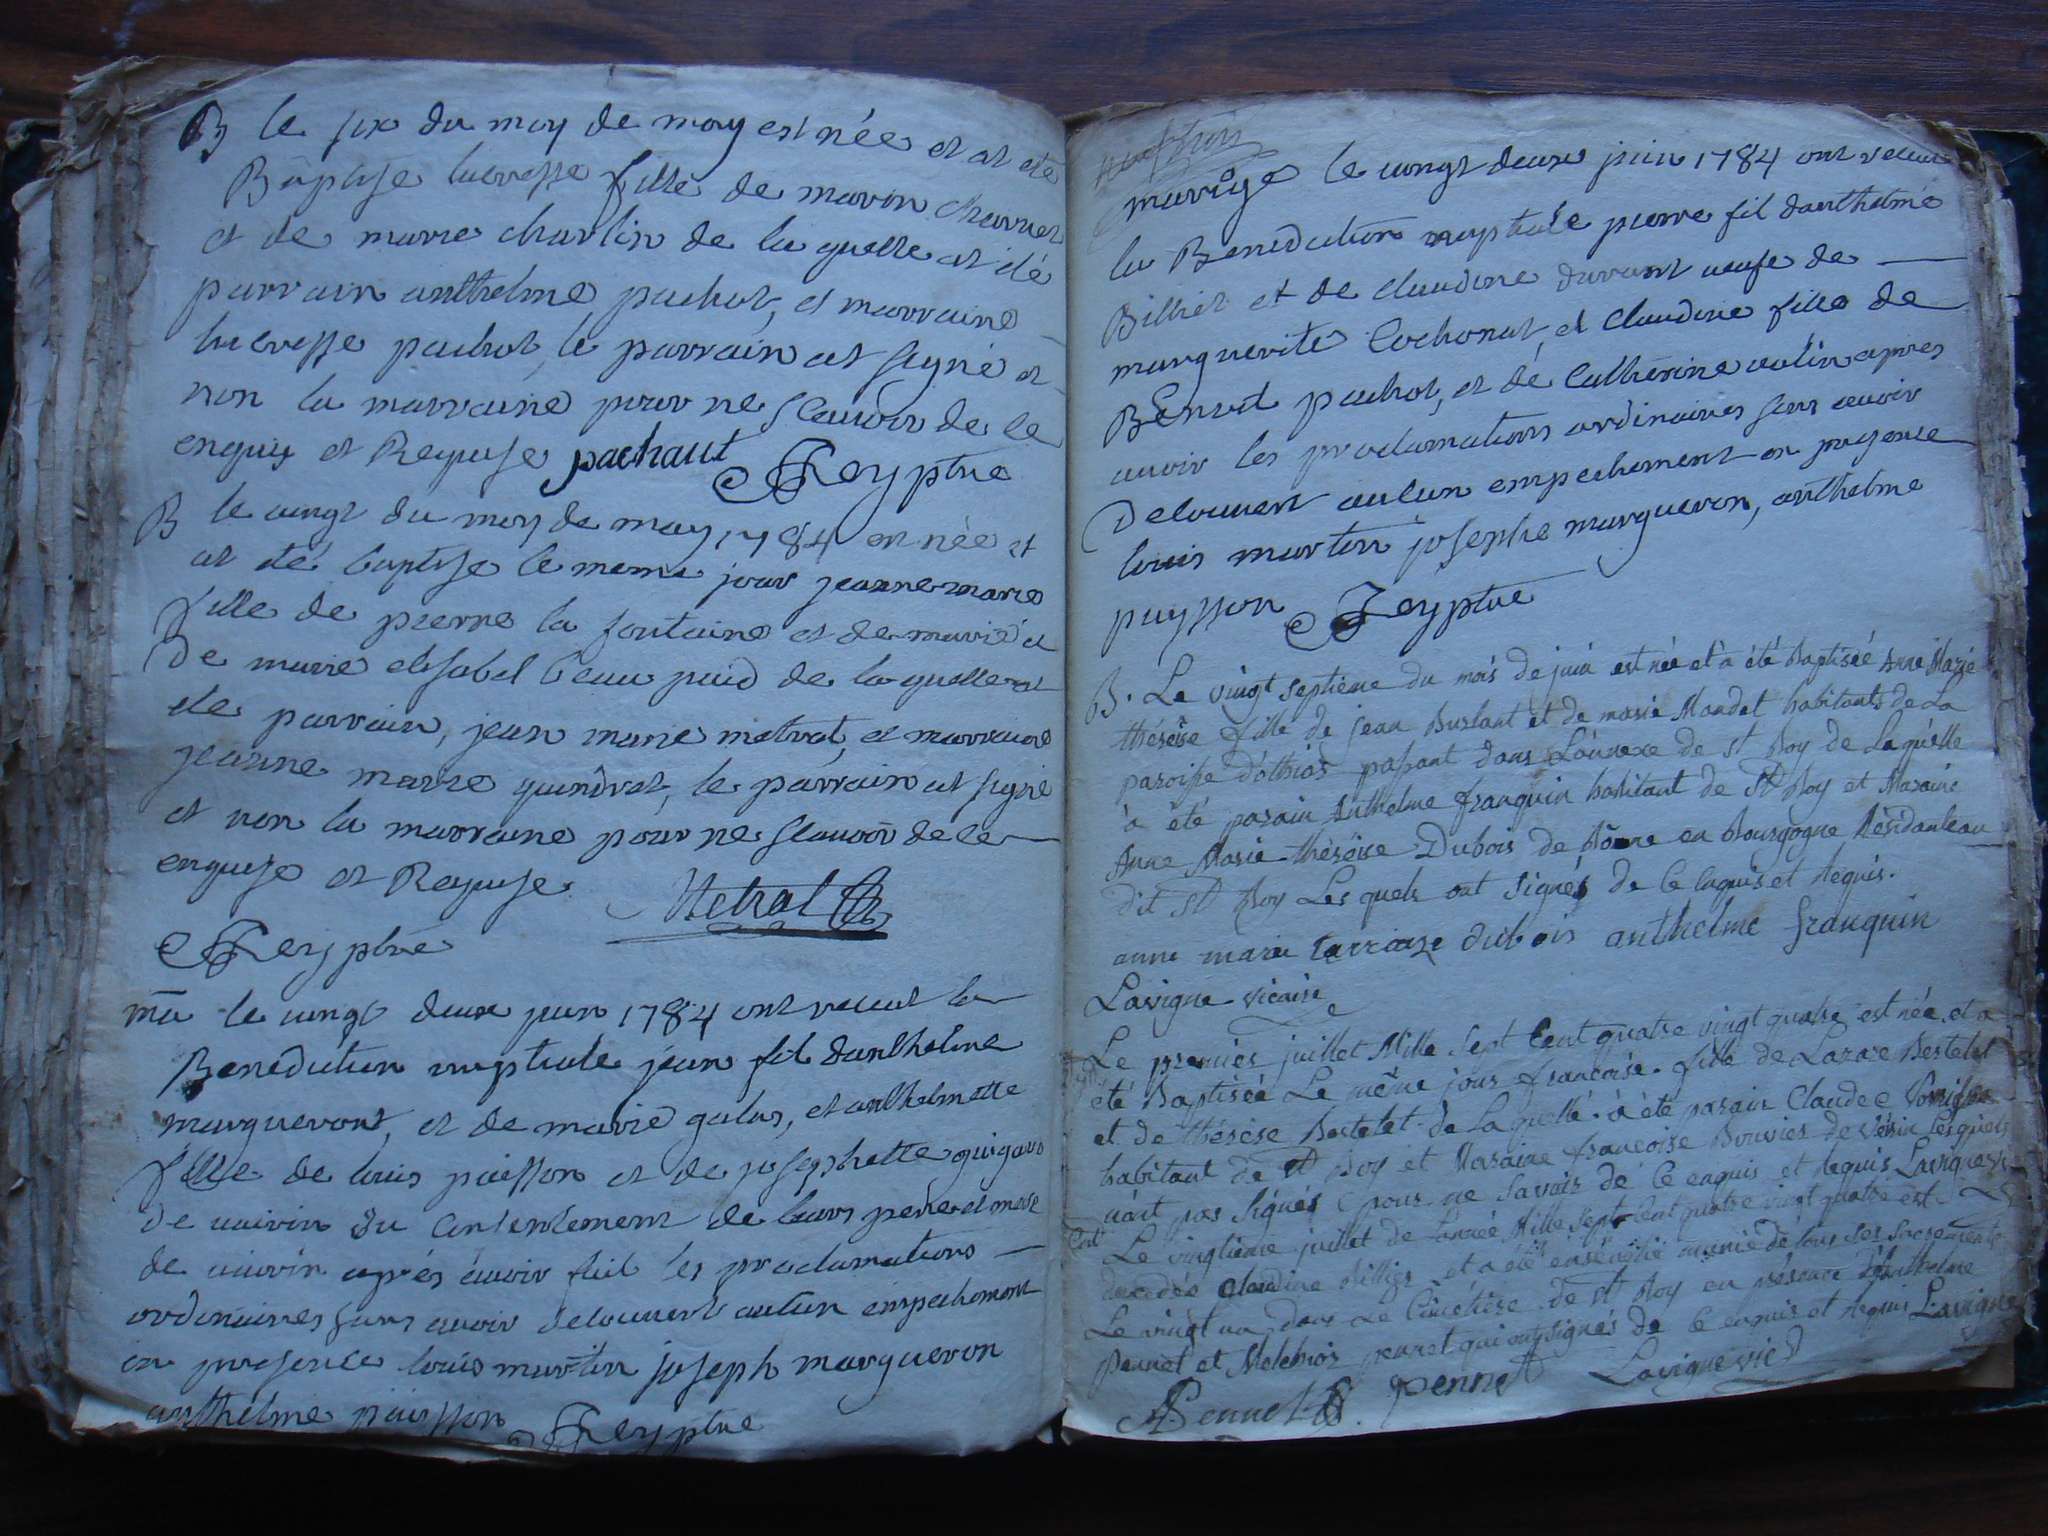 B le six du moy de may est née et at eté
Baptise lucresse fille de marin charvet
et de marie charlin de la quelle at eté
parrain anthelme pachot, et marraine
lucresse pachot, le parrain at signé et
non la marraine pour ne scavoir de ce
enquis et Requise pachaut
B le vingt du moy de may 1784 est née et
at eté baptise le meme jour jeanne marie
fille de pierre la fontaine et de marie et
De marie elisabel beau puid de la quelle at
ete parrain, jean marie metrat, et marraine
jeanne marie guindret, le parrain at signé
et non la marraine pour ne scavoir de ce
enquise et Requise Metral
ma le vingt deux juin 1784 ont receut la
Benediction nuptiale jean fil danthelme
margueront, et de marie galus, et anthelmette
fille de louis paisson et de josephette
De vuirin du consentement de leurs pere et mere
de vuirin après avoir fait les proclamations
ordinaires sans avoir decouvert aucun empechement
en presence louis martin joseph margueron
anthelme paisson
mariage le vingt deux juin 1784 ont receut
la Benediction nuptiale pierre fil danthelme
Billiet et de claudine durant veuf de
marguerite Cochonat, et claudine fille de
Benoit pachot, et dé Catherine aulin apres
avoir les proclamations ordinaires sans avoir
Decouvert aucun empechement en presence
louis martin josephe margueron, anthelme
puysson
B. Le vingt septième du mois de juin est née et a été Baptisée Anne Marie
thérèse fille de jean Burlant et de marie Mandet habitants de La
paroisse d'othior passant dans L'annexe de St Boy de Laquelle
à été parain Anthelme franquin habitant de St Boy et Maraine
Anne Marie thérèse Dubois de en Bourgogne Résidante au
dit St Boy Les quels ont signés de Ce enquis et Requis.
anne marie tarraise dubois anthelme franquin
Lavigne vicaire
Le premier juillet Mille Sept Cent quatre vingt quatre est née et a
été Baptisée Le même jour françoise fille de Lazare Bertelet
et de thérèse Bertelet de Laquelle à été parain Claude
habitant de St Boy et Maraine françoise Bouvier de Vésin Lesquels
n'ont pas Signés pour ne Savoir dé Ce enquis et Requis Lavigne
Le vingtième juillet de L'année Mille Sept Cent quatre vingt quatre est
decedée claudine billiet et a été ensévélie munie dé tous Ses Sacrements
Le vingt un dans Le Cimétière de St Boy en présence d'Anthelme
Pennet et Melchior pennet qui ont signés de Ce enquis et Requis Lavigne
Pennet pennet Lavigne vic